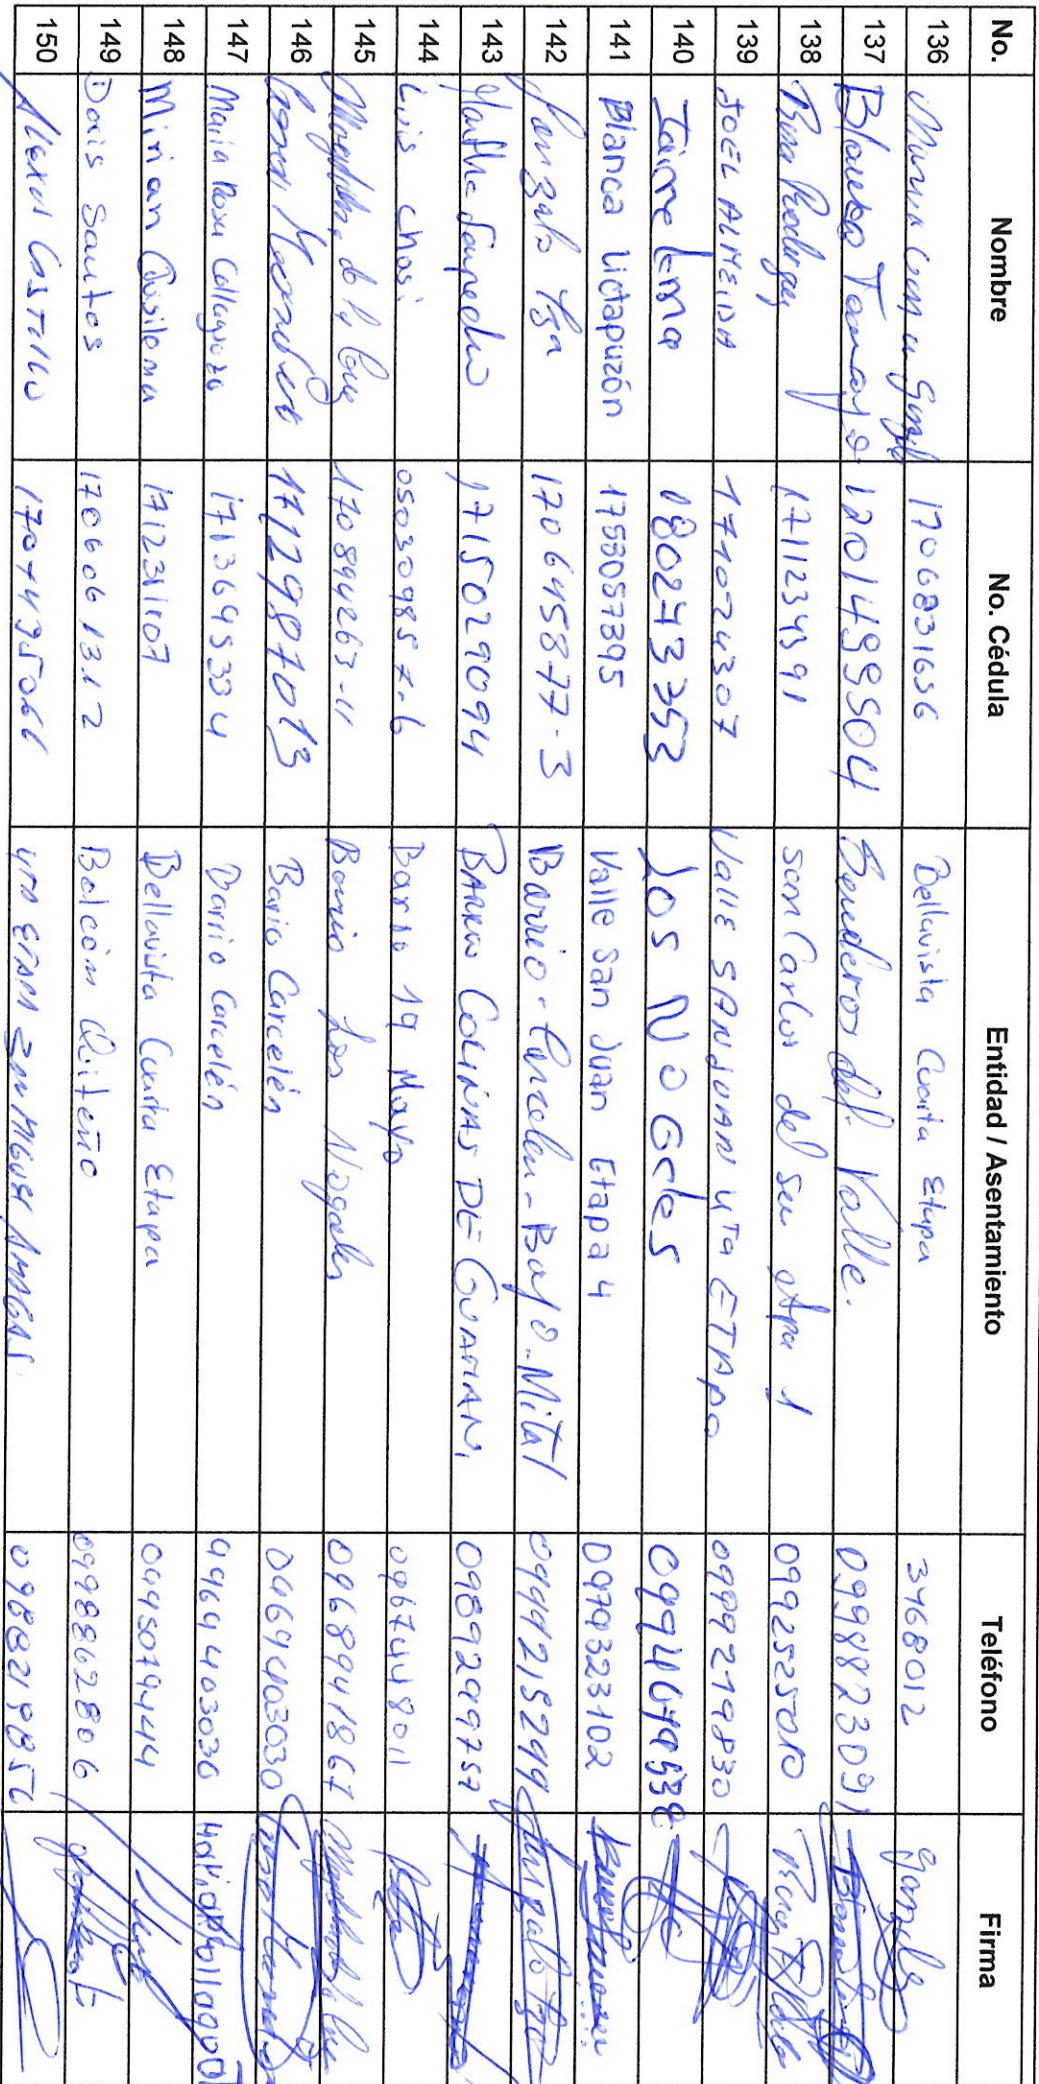 No. Nombre No. Cédula Entidad / Asentamiento Teléfono Firma
136 1706831656 Bellavista Cuarta Etapa 3468012 Gonzalo
137 Blanca 1201499504 Senderos del Valle. 0998823091
138 Rosa Rodriguez 1711234391 San Carlos del Sur etapa 1 0992525010
139 JOEL ALMEIDA 1710024307 VallE SAN JUAN 4Ta ETAPA 0999279830
140 Jaime Lema 1802433353 Los NOGales
141 Blanca Lictapuzón 1753057395 Valle San Juan Etapa 4 0979323102
142 Gonzalo 170645877-3 Barrio - Carcelen - Bajo - Mital 0999215299
143 Martha Sanpedro 1715029094 BARRIO COLINAS DE GUAMANI 0989299757
144 Luis Chasi 050309857-6 Barrio 19 Mayo 0967448011
145 Magdalena de la Cruz 170894263-11 Barrio Los Nogales 0968941867
146 1712987013 Bario Carcelén 0969403030
147 Maria Rosa Collaguazo 1713695334 Barrio Carcelén 9969403030
148 Mirian Quisilema 1712311107 Bellavista Cuarta Etapa 0995079444
149 Doris Santos 170606131.2 Balcón Quiteño 0998862806
150 Alexis CASTILLO 1704435066 4TA ETAPA 0988219856